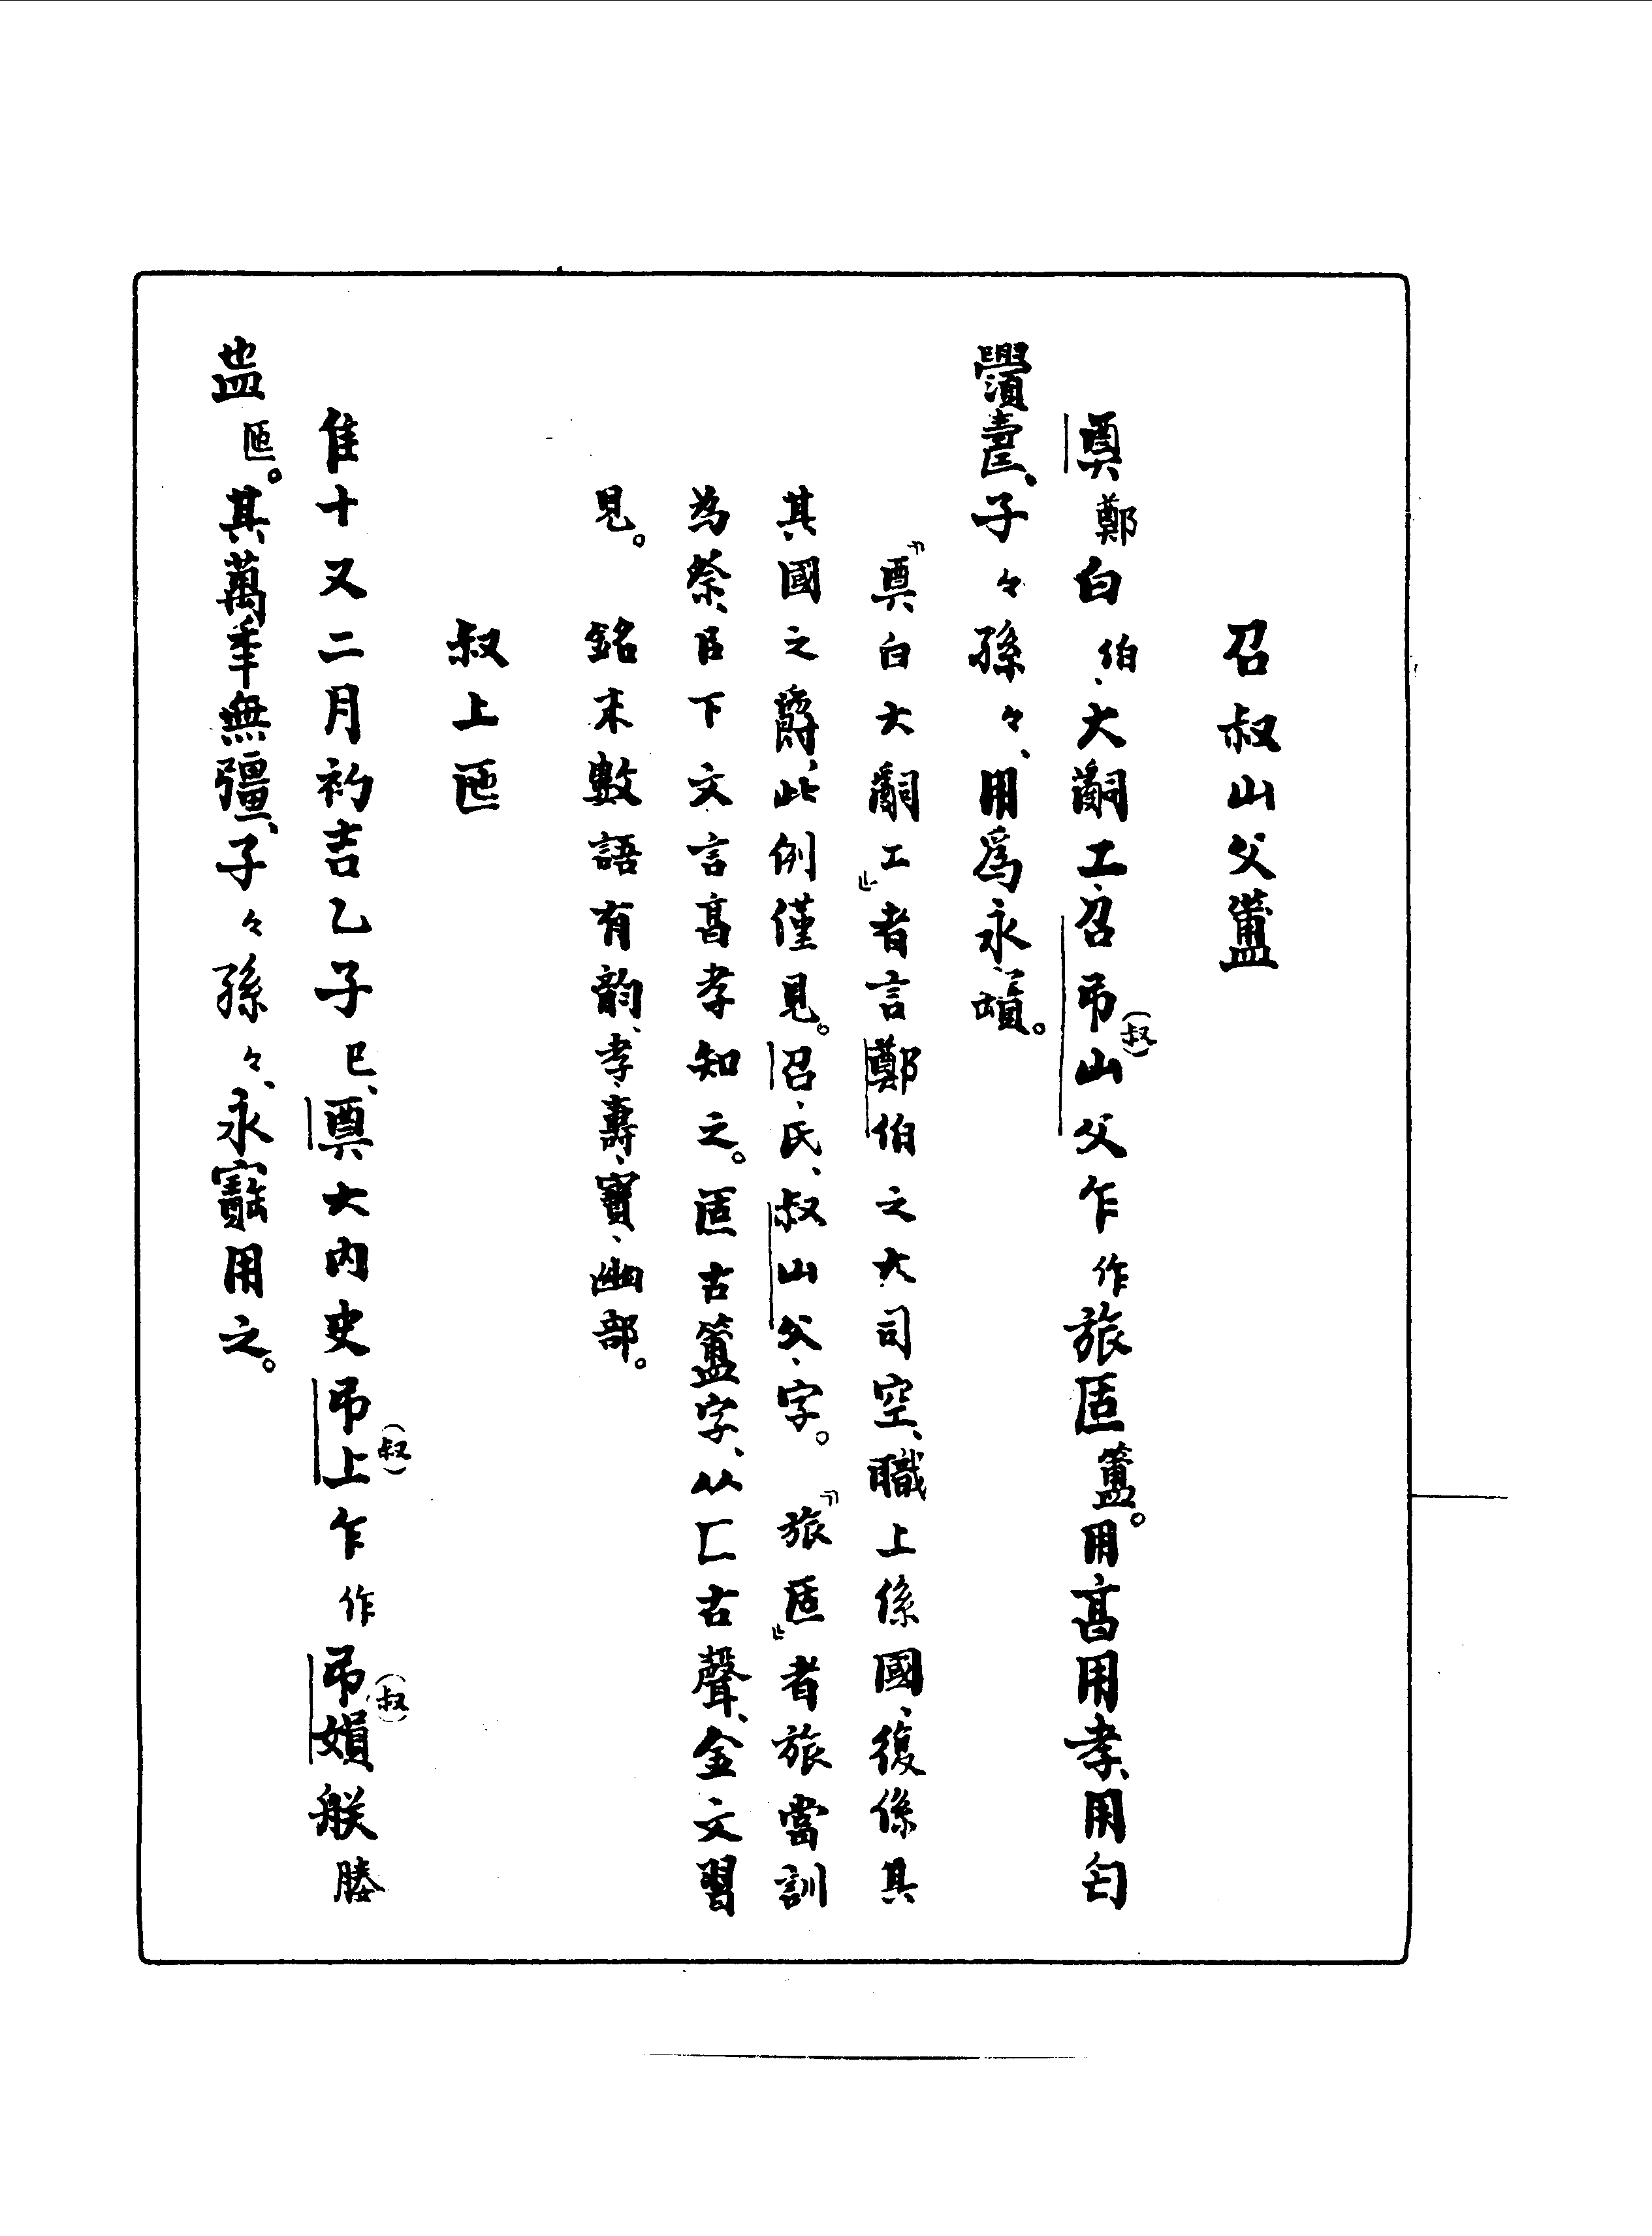 召叔山父簠
奠鄭白伯、大𤔲工、召弔(叔)山父乍作旅匿簠。用亯用孝、用匄
𧶠壽、子々孫々、用爲永寶。
『奠白大𤔲工』者言鄭伯之大司空、職上係國、復係其
其國之爵、此例僅見。召、氏、叔山父、字。『旅匿』者旅當訓
為祭、由下文言亯孝知之。匿古簠字、从匚古聲、金文習
見。銘末數語有韵、孝、壽、寶、幽部。
叔上匜
隹十又二月初吉乙子巳、奠大內史弔(叔)上乍作弔(叔)娟朕媵
匜。其萬年無彊、子々孫々、永寶用之。